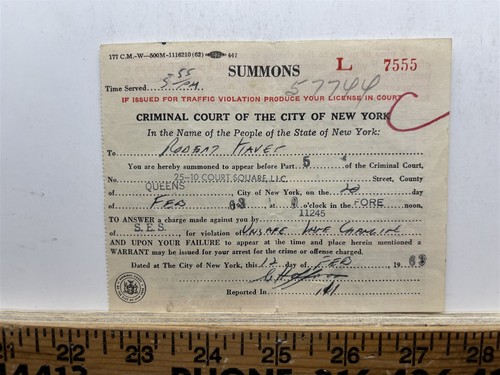 177 C.M.-W-500M-1116210 (62) 447
SUMMONS L 7555
Time Served 5 55 PM 57744
IF ISSUED FOR TRAFFIC VIOLATION PRODUCE YOUR LICENSE IN COURT
CRIMINAL COURT OF THE CITY OF NEW YORK C
In the Name of the People of the State of New York:
To Robert
You are hereby summoned to appear before Part 5 of the Criminal Court,
of 25-10 COURT SQUARE LIC Street, County
of QUEENS City of New York, on the 20 day
of FEB 63 at 9 o'clock in the FORE noon,
TO ANSWER a charge made against you by 11245
S.E.S. for violation of UNSAFE LANE CHANGING
AND UPON YOUR FAILURE to appear at the time and place herein mentioned a
WARRANT may be issued for your arrest for the crime or offense charged.
Dated at the City of New York, this 12 day of FEB 1963
Reported In 111
22 23 24 25 26 27 28